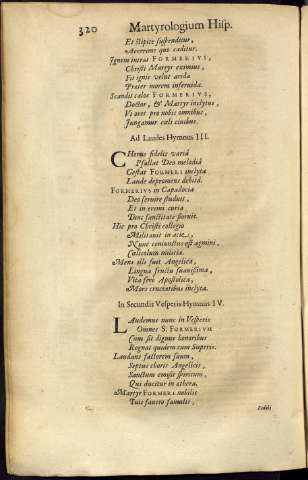 320 Martyrologium Hisp.
Et stipite suspenditur,
Acerrime quo cæditur.
Ignem intras FORMERIUS,
Christi Martyr eximius,
Fit ignis velut arida
Præter morem infervida.
Scandis cælos FORMERIUS,
Doctor, & Martyr inclytus,
Vt ores pro nobis omnibus,
Jungamur cæli civibus.
Ad Laudes Hymnus III.
CHorus fidelis variâ
Psallat Deo melodiâ
Gestas FORMERI inclyta
Laude depromens debitâ.
FORMERIUS in Capadocia
Deo servire studuit,
Et in eremi curia
Donec sanctitate floruit.
Hic pro Christi collegio
Militavit in acie,
Nunc coniunctus est agmini,
Cælestium militiæ.
Mens illi fuit Angelica,
Lingua fructu suavissima,
Vita ferè Apostolica,
Mors cruciatibus inclyta.
In Secundis Vesperis Hymnus IV.
LAudemus nunc in Vesperis
Omnes S. FORMERIUM
Cum sit dignus honoribus
Regnat quidem cum Superis.
Laudans factorem suum,
Septus choris Angelicis,
Sanctum emisit spiritum,
Qui ducitur in æthera.
Martyr FORMERI nobilis
Tuis fautor famulis,